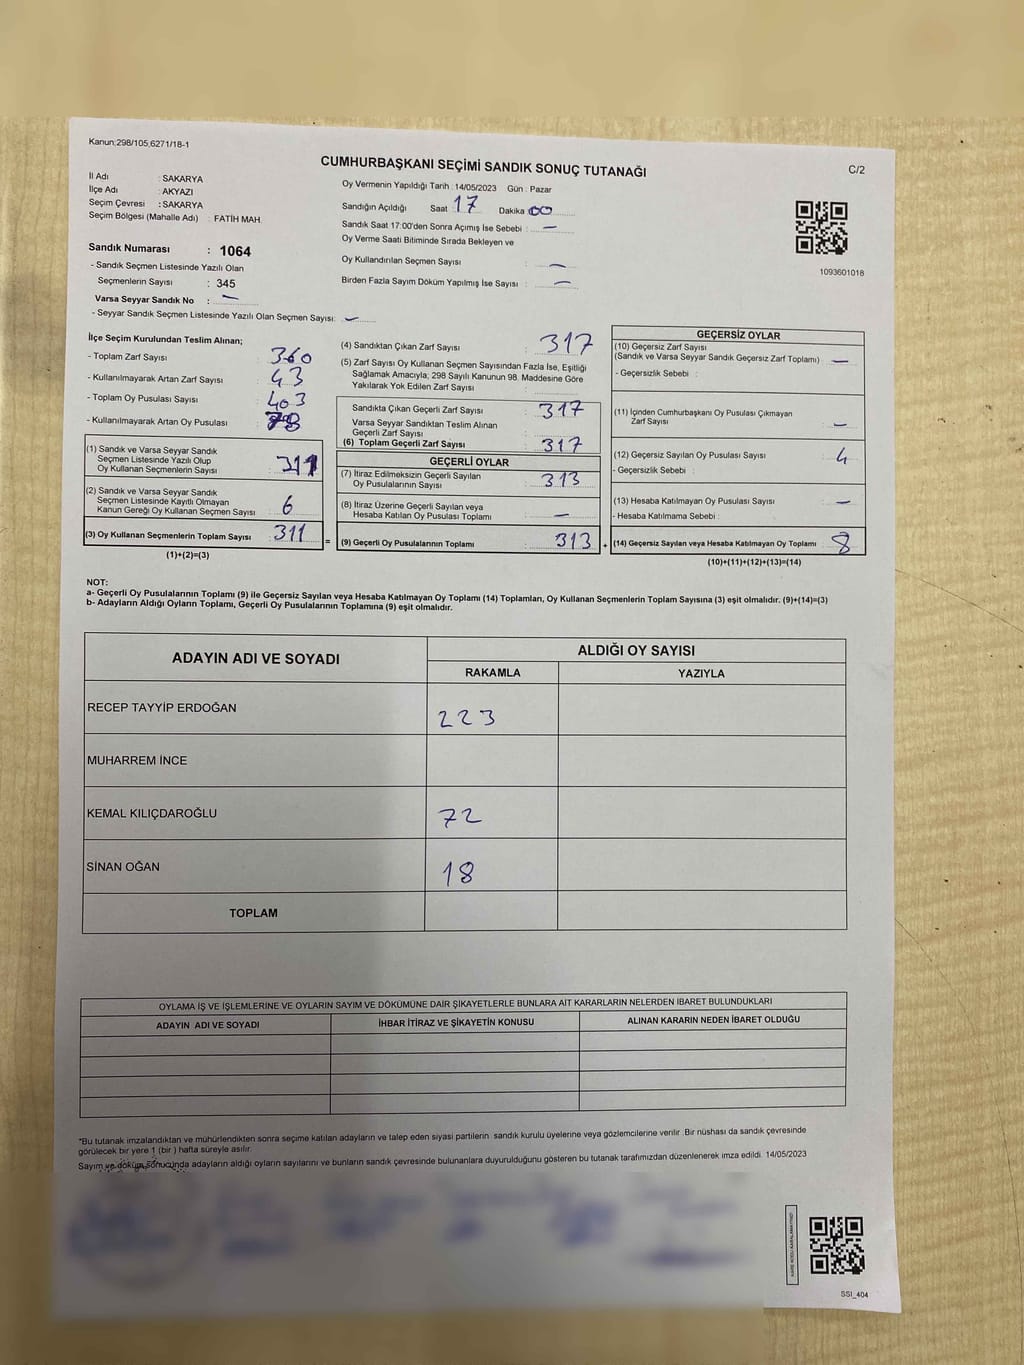 Kanun;298/105,6271/18-1
CUMHURBAŞKANI SEÇİMİ SANDIK SONUÇ TUTANAĞI
C/2
İl Adı : SAKARYA
İlçe Adı : AKYAZI
Seçim Çevresi : SAKARYA
Seçim Bölgesi (Mahalle Adı) : FATİH MAH.
Sandık Numarası : 1064
- Sandık Seçmen Listesinde Yazılı Olan
Seçmenlerin Sayısı : 345
Varsa Seyyar Sandık No : —
- Seyyar Sandık Seçmen Listesinde Yazılı Olan Seçmen Sayısı: —
Oy Vermenin Yapıldığı Tarih : 14/05/2023 Gün : Pazar
Sandığın Açıldığı Saat 17 Dakika 00
Sandık Saat 17:00'den Sonra Açımış İse Sebebi : —
Oy Verme Saati Bitiminde Sırada Bekleyen ve
Oy Kullandırılan Seçmen Sayısı : —
Birden Fazla Sayım Döküm Yapılmış İse Sayısı : —
1093601018
İlçe Seçim Kurulundan Teslim Alınan;
- Toplam Zarf Sayısı : 360
- Kullanılmayarak Artan Zarf Sayısı : 43
- Toplam Oy Pusulası Sayısı : 403
- Kullanılmayarak Artan Oy Pusulası :
(1) Sandık ve Varsa Seyyar Sandık
Seçmen Listesinde Yazılı Olup
Oy Kullanan Seçmenlerin Sayısı : 311
(2) Sandık ve Varsa Seyyar Sandık
Seçmen Listesinde Kayıtlı Olmayan
Kanun Gereği Oy Kullanan Seçmen Sayısı : 6
(3) Oy Kullanan Seçmenlerin Toplam Sayısı : 311 =
(1)+(2)=(3)
(4) Sandıktan Çıkan Zarf Sayısı : 317
(5) Zarf Sayısı Oy Kullanan Seçmen Sayısından Fazla İse, Eşitliği
Sağlamak Amacıyla; 298 Sayılı Kanunun 98. Maddesine Göre
Yakılarak Yok Edilen Zarf Sayısı :
Sandıkta Çıkan Geçerli Zarf Sayısı : 317
Varsa Seyyar Sandıktan Teslim Alınan
Geçerli Zarf Sayısı :
(6) Toplam Geçerli Zarf Sayısı : 317
GEÇERLİ OYLAR
(7) İtiraz Edilmeksizin Geçerli Sayılan
Oy Pusulalarının Sayısı : 313
(8) İtiraz Üzerine Geçerli Sayılan veya
Hesaba Katılan Oy Pusulası Toplamı : —
(9) Geçerli Oy Pusulalarının Toplamı : 313 +
GEÇERSİZ OYLAR
(10) Geçersiz Zarf Sayısı
(Sandık ve Varsa Seyyar Sandık Geçersiz Zarf Toplamı) : —
- Geçersizlik Sebebi :
(11) İçinden Cumhurbaşkanı Oy Pusulası Çıkmayan
Zarf Sayısı : —
(12) Geçersiz Sayılan Oy Pusulası Sayısı : 4
- Geçersizlik Sebebi :
(13) Hesaba Katılmayan Oy Pusulası Sayısı : —
- Hesaba Katılmama Sebebi :
(14) Geçersiz Sayılan veya Hesaba Katılmayan Oy Toplamı : 8
(10)+(11)+(12)+(13)=(14)
NOT:
a- Geçerli Oy Pusulalarının Toplamı (9) ile Geçersiz Sayılan veya Hesaba Katılmayan Oy Toplamı (14) Toplamları, Oy Kullanan Seçmenlerin Toplam Sayısına (3) eşit olmalıdır. (9)+(14)=(3)
b- Adayların Aldığı Oyların Toplamı, Geçerli Oy Pusulalarının Toplamına (9) eşit olmalıdır.
ADAYIN ADI VE SOYADI
ALDIĞI OY SAYISI
RAKAMLA YAZIYLA
RECEP TAYYİP ERDOĞAN 223
MUHARREM İNCE
KEMAL KILIÇDAROĞLU 72
SİNAN OĞAN 18
TOPLAM
OYLAMA İŞ VE İŞLEMLERİNE VE OYLARIN SAYIM VE DÖKÜMÜNE DAİR ŞİKAYETLERLE BUNLARA AİT KARARLARIN NELERDEN İBARET BULUNDUKLARI
ADAYIN ADI VE SOYADI İHBAR İTİRAZ VE ŞİKAYETİN KONUSU ALINAN KARARIN NEDEN İBARET OLDUĞU
*Bu tutanak imzalandıktan ve mühürlendikten sonra seçime katılan adayların ve talep eden siyasi partilerin sandık kurulu üyelerine veya gözlemcilerine verilir. Bir nüshası da sandık çevresinde
görülecek bir yere 1 (bir ) hafta süreyle asılır.
Sayım ve döküm sonucunda adayların aldığı oyların sayılarını ve bunların sandık çevresinde bulunanlara duyurulduğunu gösteren bu tutanak tarafımızdan düzenlenerek imza edildi. 14/05/2023
SSI_404